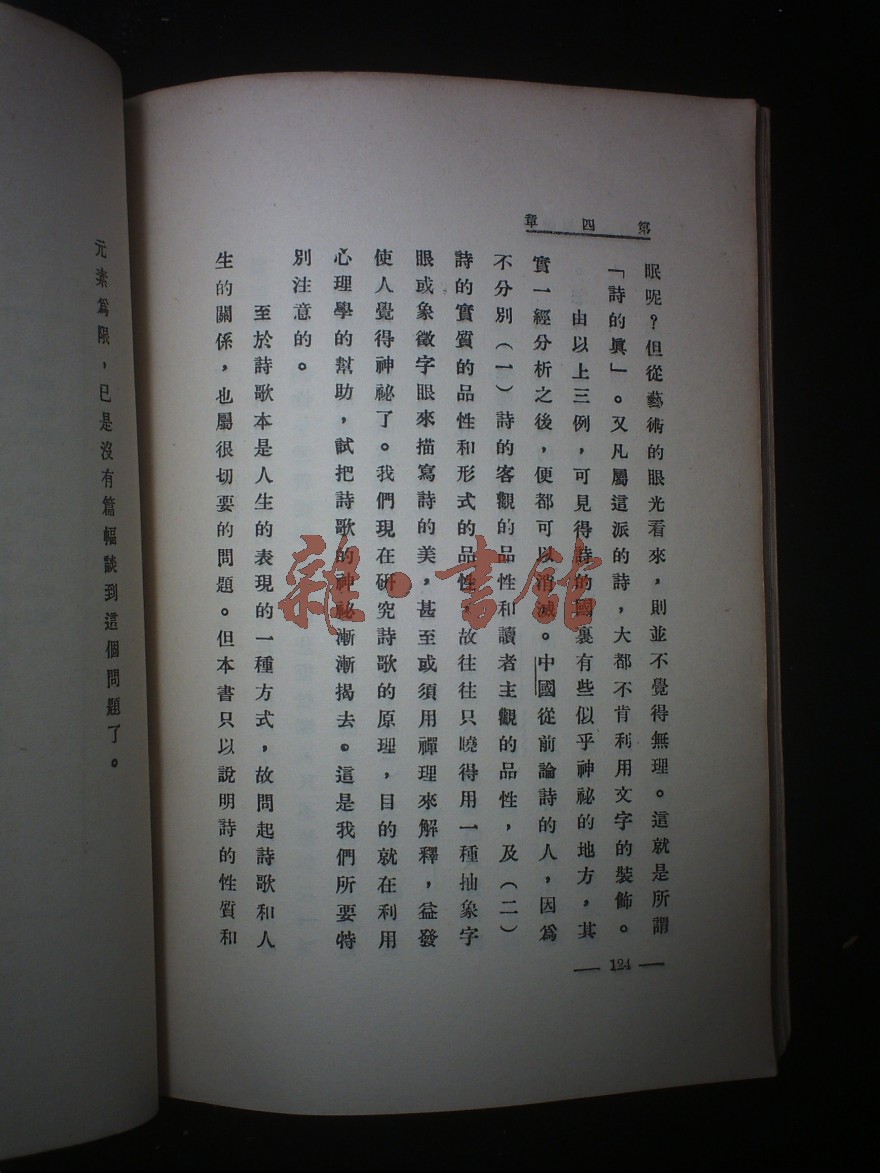 第四章
眠呢？但從藝術的眼光看來，則並不覺得無理。這就是所謂
「詩的眞」。又凡屬這派的詩，大都不肯利用文字的裝飾。
由以上三例，可見得詩的國裏有些似乎神祕的地方，其
實一經分析之後，便都可以消滅。中國從前論詩的人，因爲
不分別（一）詩的客觀的品性和讀者主觀的品性，及（二）
詩的實質的品性和形式的品性，故往往只曉得用一種抽象字
眼或象徵字眼來描寫詩的美，甚至或須用禪理來解釋，益發
使人覺得神祕了。我們現在研究詩歌的原理，目的就在利用
心理學的幫助，試把詩歌的神祕漸漸揭去。這是我們所要特
別注意的。
至於詩歌本是人生的表現的一種方式，故問起詩歌和人
生的關係，也屬很切要的問題。但本書只以說明詩的性質和
— 124 —
元素爲限，已是沒有篇幅談到這個問題了。
雜·書館